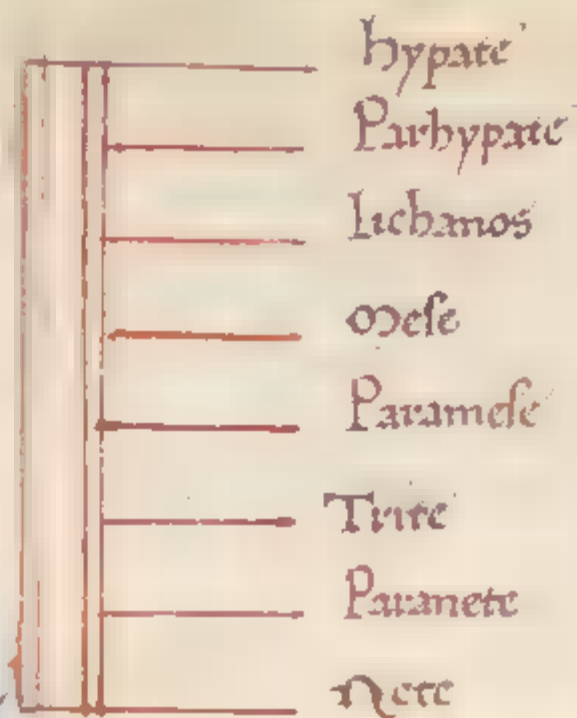 hypate
Parhypate
lichanos
Mese
Paramese
Trite
Paranete
Nete